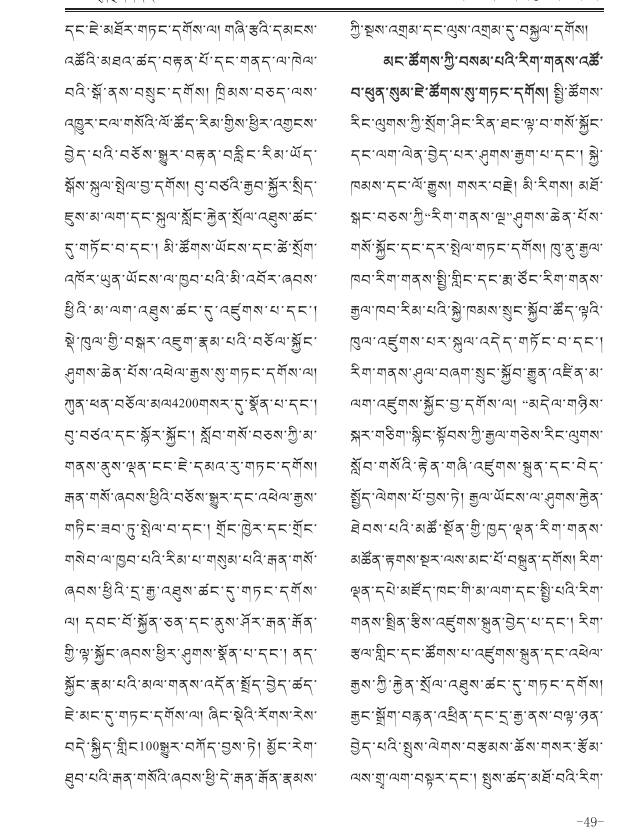 དང་ཇེ་མཐོར་གཏང་དགོས་ལ། གཞི་རྩའི་དམངས་
འཚོའི་མཐའ་ཚད་བརྟན་པོ་དང་གནད་ལ་ཁེལ་
བའི་སྒོ་ནས་བསྲུང་དགོས། ཁྲིམས་བཅད་ལས་
འཁྱུར་ངལ་གསོའི་ལོ་ཚོད་རིམ་གྱིས་ཕྱིར་འགྱངས་
བྱེད་པའི་བཅོས་སྒྱུར་བརྟན་བརླིང་རིམ་ཡོད་
སྒོས་སྐུལ་སྤེལ་བྱ་དགོས། བུ་བཙའི་རྒྱབ་སྐྱོར་སྲིད་
ཇུས་མ་ལག་དང་སྐུལ་སློང་རྐྱེན་སྲོལ་འཐུས་ཚང་
དུ་གཏོང་བ་དང་། མི་ཚོགས་ཡོངས་དང་ཚེ་སྲོག་
འཁོར་ཡུན་ཡོངས་ལ་ཁྱབ་པའི་མི་འབོར་ཞབས་
ཕྱིའི་མ་ལག་འཐུས་ཚང་དུ་འཛུགས་པ་དང་།
སྡེ་ཁུལ་གྱི་བསྒར་འཇུག་རྣམ་པའི་བཅོལ་སྐྱོང་
ཤུགས་ཆེན་པོས་འཕེལ་རྒྱས་སུ་གཏང་དགོས་ལ།
ཀུན་ཕན་བཅོལ་མལ4200གསར་དུ་སྣོན་པ་དང་།
བུ་བཙའ་དང་སྐྱོར་སྐྱོང་། སློབ་གསོ་བཅས་ཀྱི་མ་
གནས་ནུས་ལྡན་ངང་ཇེ་དམའ་རུ་གཏང་དགོས།
རྒན་གསོ་ཞབས་ཕྱིའི་བཅོས་སྒྱུར་དང་འཕེལ་རྒྱས་
གཏིང་ཟབ་ཏུ་སྤེལ་བ་དང་། གྲོང་ཁྱེར་དང་གྲོང་
གསེབ་ལ་ཁྱབ་པའི་རིམ་པ་གསུམ་པའི་རྒན་གསོ་
ཞབས་ཕྱིའི་དྲ་རྒྱ་འཐུས་ཚང་དུ་གཏང་དགོས་
ལ། དབང་པོ་སྐྱོན་ཅན་དང་ནུས་ཤོར་རྒན་རྒོན་
གྱི་ལྟ་སྐྱོང་ཞབས་ཕྱིར་ཤུགས་སྣོན་པ་དང་། ནད་
སྐྱོང་རྣམ་པའི་མལ་གནས་འདོན་སྤྲོད་བྱེད་ཚད་
ཇེ་མང་དུ་གཏང་དགོས་ལ། ཞིང་སྡེའི་རོགས་རེས་
བདེ་སྐྱིད་གླིང100སྒྱུར་བཀོད་བྱས་ཏེ། མྱོང་རེག་
ཐུབ་པའི་རྒན་གསོའི་ཞབས་ཕྱི་དེ་རྒན་རྒོན་རྣམས་
ཀྱི་སྔས་འགྲམ་དང་ལུས་འགྲམ་དུ་བསྐྱལ་དགོས།
མང་ཚོགས་ཀྱི་བསམ་པའི་རིག་གནས་འཚོ་
བ་ཕུན་སུམ་ཇེ་ཚོགས་སུ་གཏང་དགོས། སྤྱི་ཚོགས་
རིང་ལུགས་ཀྱི་སྲོག་ཤིང་རིན་ཐང་ལྟ་བ་གསོ་སྐྱོང་
དང་ལག་ལེན་བྱེད་པར་ཤུགས་རྒྱག་པ་དང་། སྐྱེ་
ཁམས་དང་ལོ་རྒྱུས། གསར་བརྗེ། མི་རིགས། མཐོ་
སྒང་བཅས་ཀྱི“རིག་གནས་ལྔ”ཤུགས་ཆེན་པོས་
གསོ་སྐྱོང་དང་དར་སྤེལ་གཏང་དགོས། ཁུ་ནུ་རྒྱལ་
ཁབ་རིག་གནས་སྤྱི་གླིང་དང་རྨ་ཙོང་རིག་གནས་
རྒྱལ་ཁབ་རིམ་པའི་སྐྱེ་ཁམས་སྲུང་སྐྱོབ་ཚོད་ལྟའི་
ཁུལ་འཛུགས་པར་སྐུལ་འདེད་གཏོང་བ་དང་།
རིག་གནས་ཤུལ་བཞག་སྲུང་སྐྱོབ་རྒྱུན་འཛིན་མ་
ལག་འཛུགས་སྐྱོང་བྱ་དགོས་ལ། “མདེལ་གཉིས་
སྐར་གཅིག”སྙིང་སྟོབས་ཀྱི་རྒྱལ་གཅེས་རིང་ལུགས་
སློབ་གསོའི་རྟེན་གཞི་འཛུགས་སྐྲུན་དང་བེད་
སྤྱོད་ལེགས་པོ་བྱས་ཏེ། རྒྱལ་ཡོངས་ལ་ཤུགས་རྐྱེན་
ཐེབས་པའི་མཚོ་སྔོན་གྱི་ཁྱད་ལྡན་རིག་གནས་
མཚོན་རྟགས་སྔར་ལས་མང་པོ་བསྐྲུན་དགོས། རིག་
ལྡན་དཔེ་མཛོད་ཁང་གི་མ་ལག་དང་སྤྱི་པའི་རིག་
གནས་སྤྲིན་རྩིས་འཛུགས་སྐྲུན་བྱེད་པ་དང་། རིག་
རྩལ་གླིང་དང་ཚོགས་པ་འཛུགས་སྐྲུན་དང་འཕེལ་
རྒྱས་ཀྱི་རྐྱེན་སྲོལ་འཐུས་ཚང་དུ་གཏང་དགོས།
རྒྱང་སྒྲོག་བརྙན་འཕྲིན་དང་དྲ་རྒྱ་ནས་བལྟ་ཉན་
བྱེད་པའི་སྤུས་ལེགས་བརྩམས་ཆོས་གསར་རྩོམ་
ལས་གྲྭ་ལག་བསྟར་དང་། སྤུས་ཚད་མཐོ་བའི་རིག་
-49-